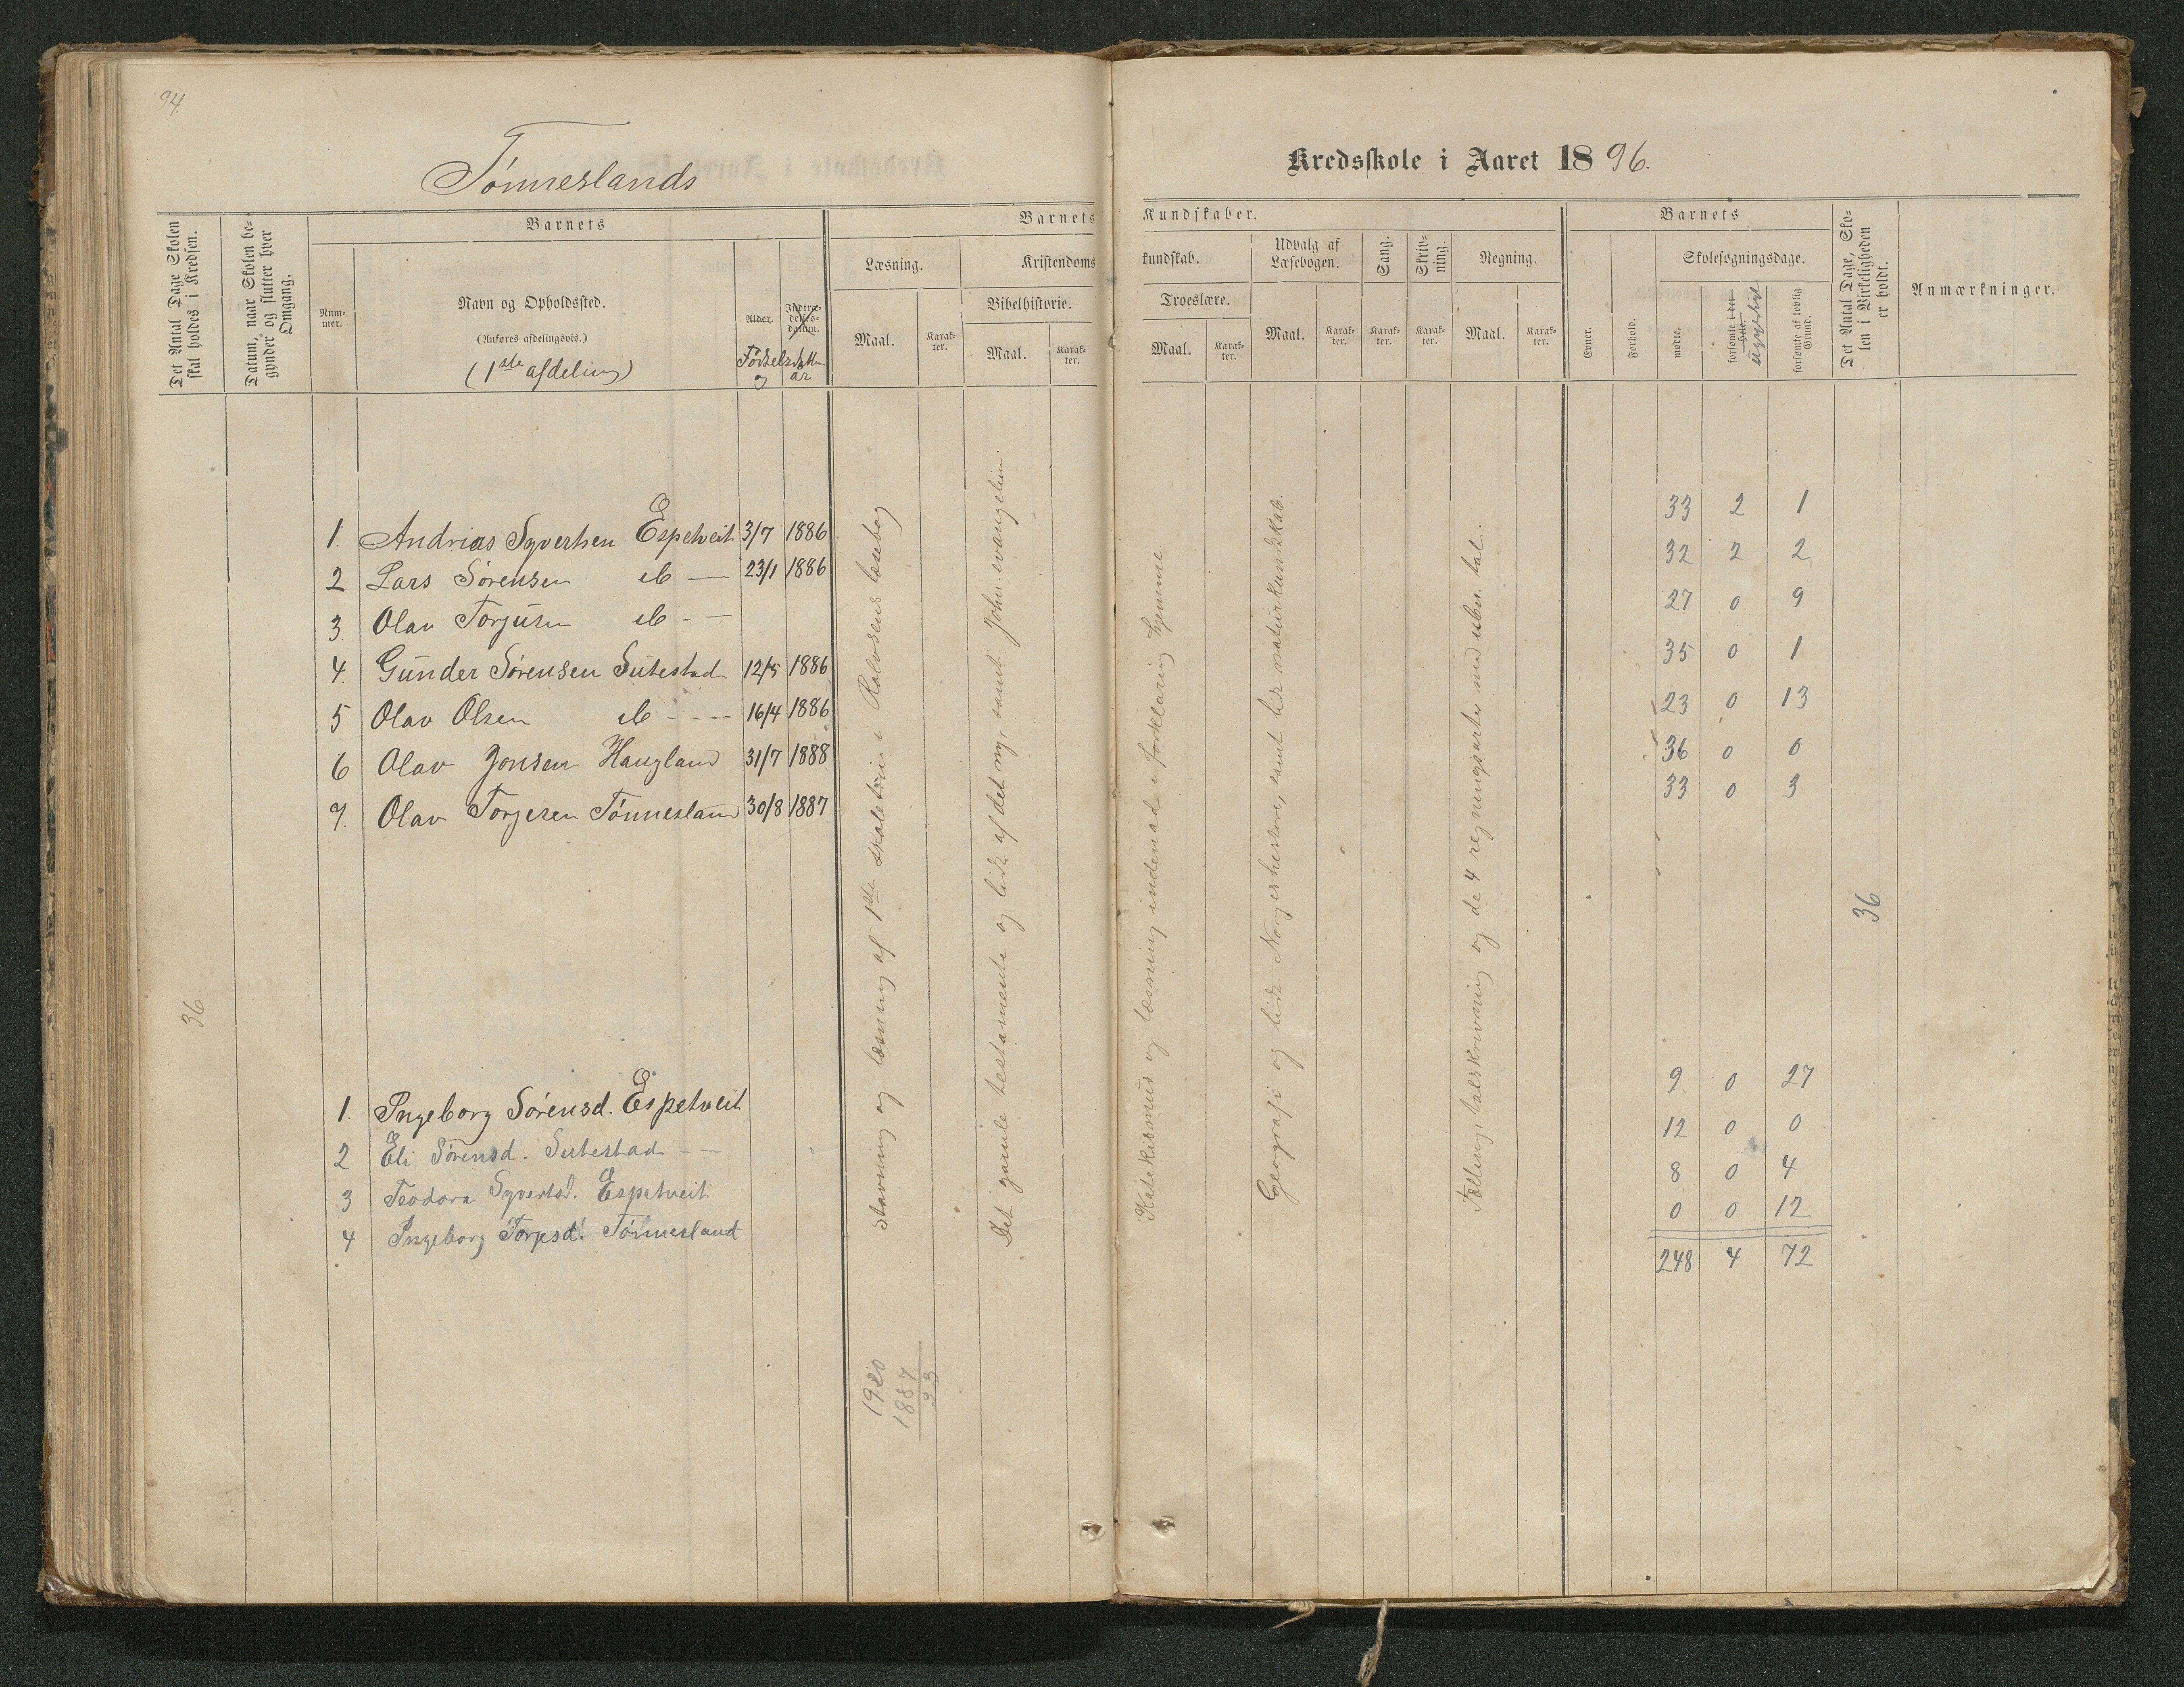 94.
Tönneslands
Kredsskole i Aaret 1896.
Det Antal Dage Skolen skal holdes i Kredsen.
Datum, naar Skolen begynder og slutter hver Omgang.
Barnets
Nummer.
Navn og Opholdssted.
(Anføres afdelingsvis.)
(1ste afdeling)
Alder.
Indtrædelses-datum.
og
år
Barnets Kundskaber.
Læsning.
Maal.
Karakter.
Kristendomskundskab.
Bibelhistorie.
Maal.
Karakter.
Troeslære.
Maal.
Karakter.
Udvalg af Læsebogen.
Maal.
Karakter.
Sang.
Karakter.
Skrivning.
Karakter.
Regning.
Maal.
Karakter.
Barnets
Evner.
Forhold.
Skolesøgningsdage.
mødte.
forsømte i det Hele.
forsømte af lovlig Grund.
Det Antal Dage, Skolen i Virkeligheden er holdt.
Anmærkninger.
1. Andrias Syvertsen Espetveit 3/7 1886 33 2 1
2 Lars Sörensen 23/1 1886 32 2 2
3. Olav Torjusen 27 0 9
4. Gunder Sörensen Sutestad 12/5 1886 35 0 1
5 Olav Olsen 16/4 1886 23 0 13
6 Olav Jonsen Haugland 31/7 1888 36 0 0
7. Olav Torjesen Tönnesland 30/8 1887 33 0 3
36
36
1. Ingeborg Sörensd. Espetveit 9 0 27
2 Eli Sörensd. Sutestad 12 0 0
3 Teodora Syvertsd. Espetveit 8 0 4
4 Ingeborg Torjesd. Tönnesland 0 0 12
248 4 72
Stavning og læsning af 1ste skoletrin i Rolvsens læsebog
Det gamle testamente og lidt af det ny, samt Joh. evangelium.
Katekismus og læsning indenad i forklaring hjemme
Geografi og lidt Norgeshistorie, samt lidt naturkundskab.
Tælling, talskrivning og de 4 regningsarter med ubn. tal.
1920
1887
33